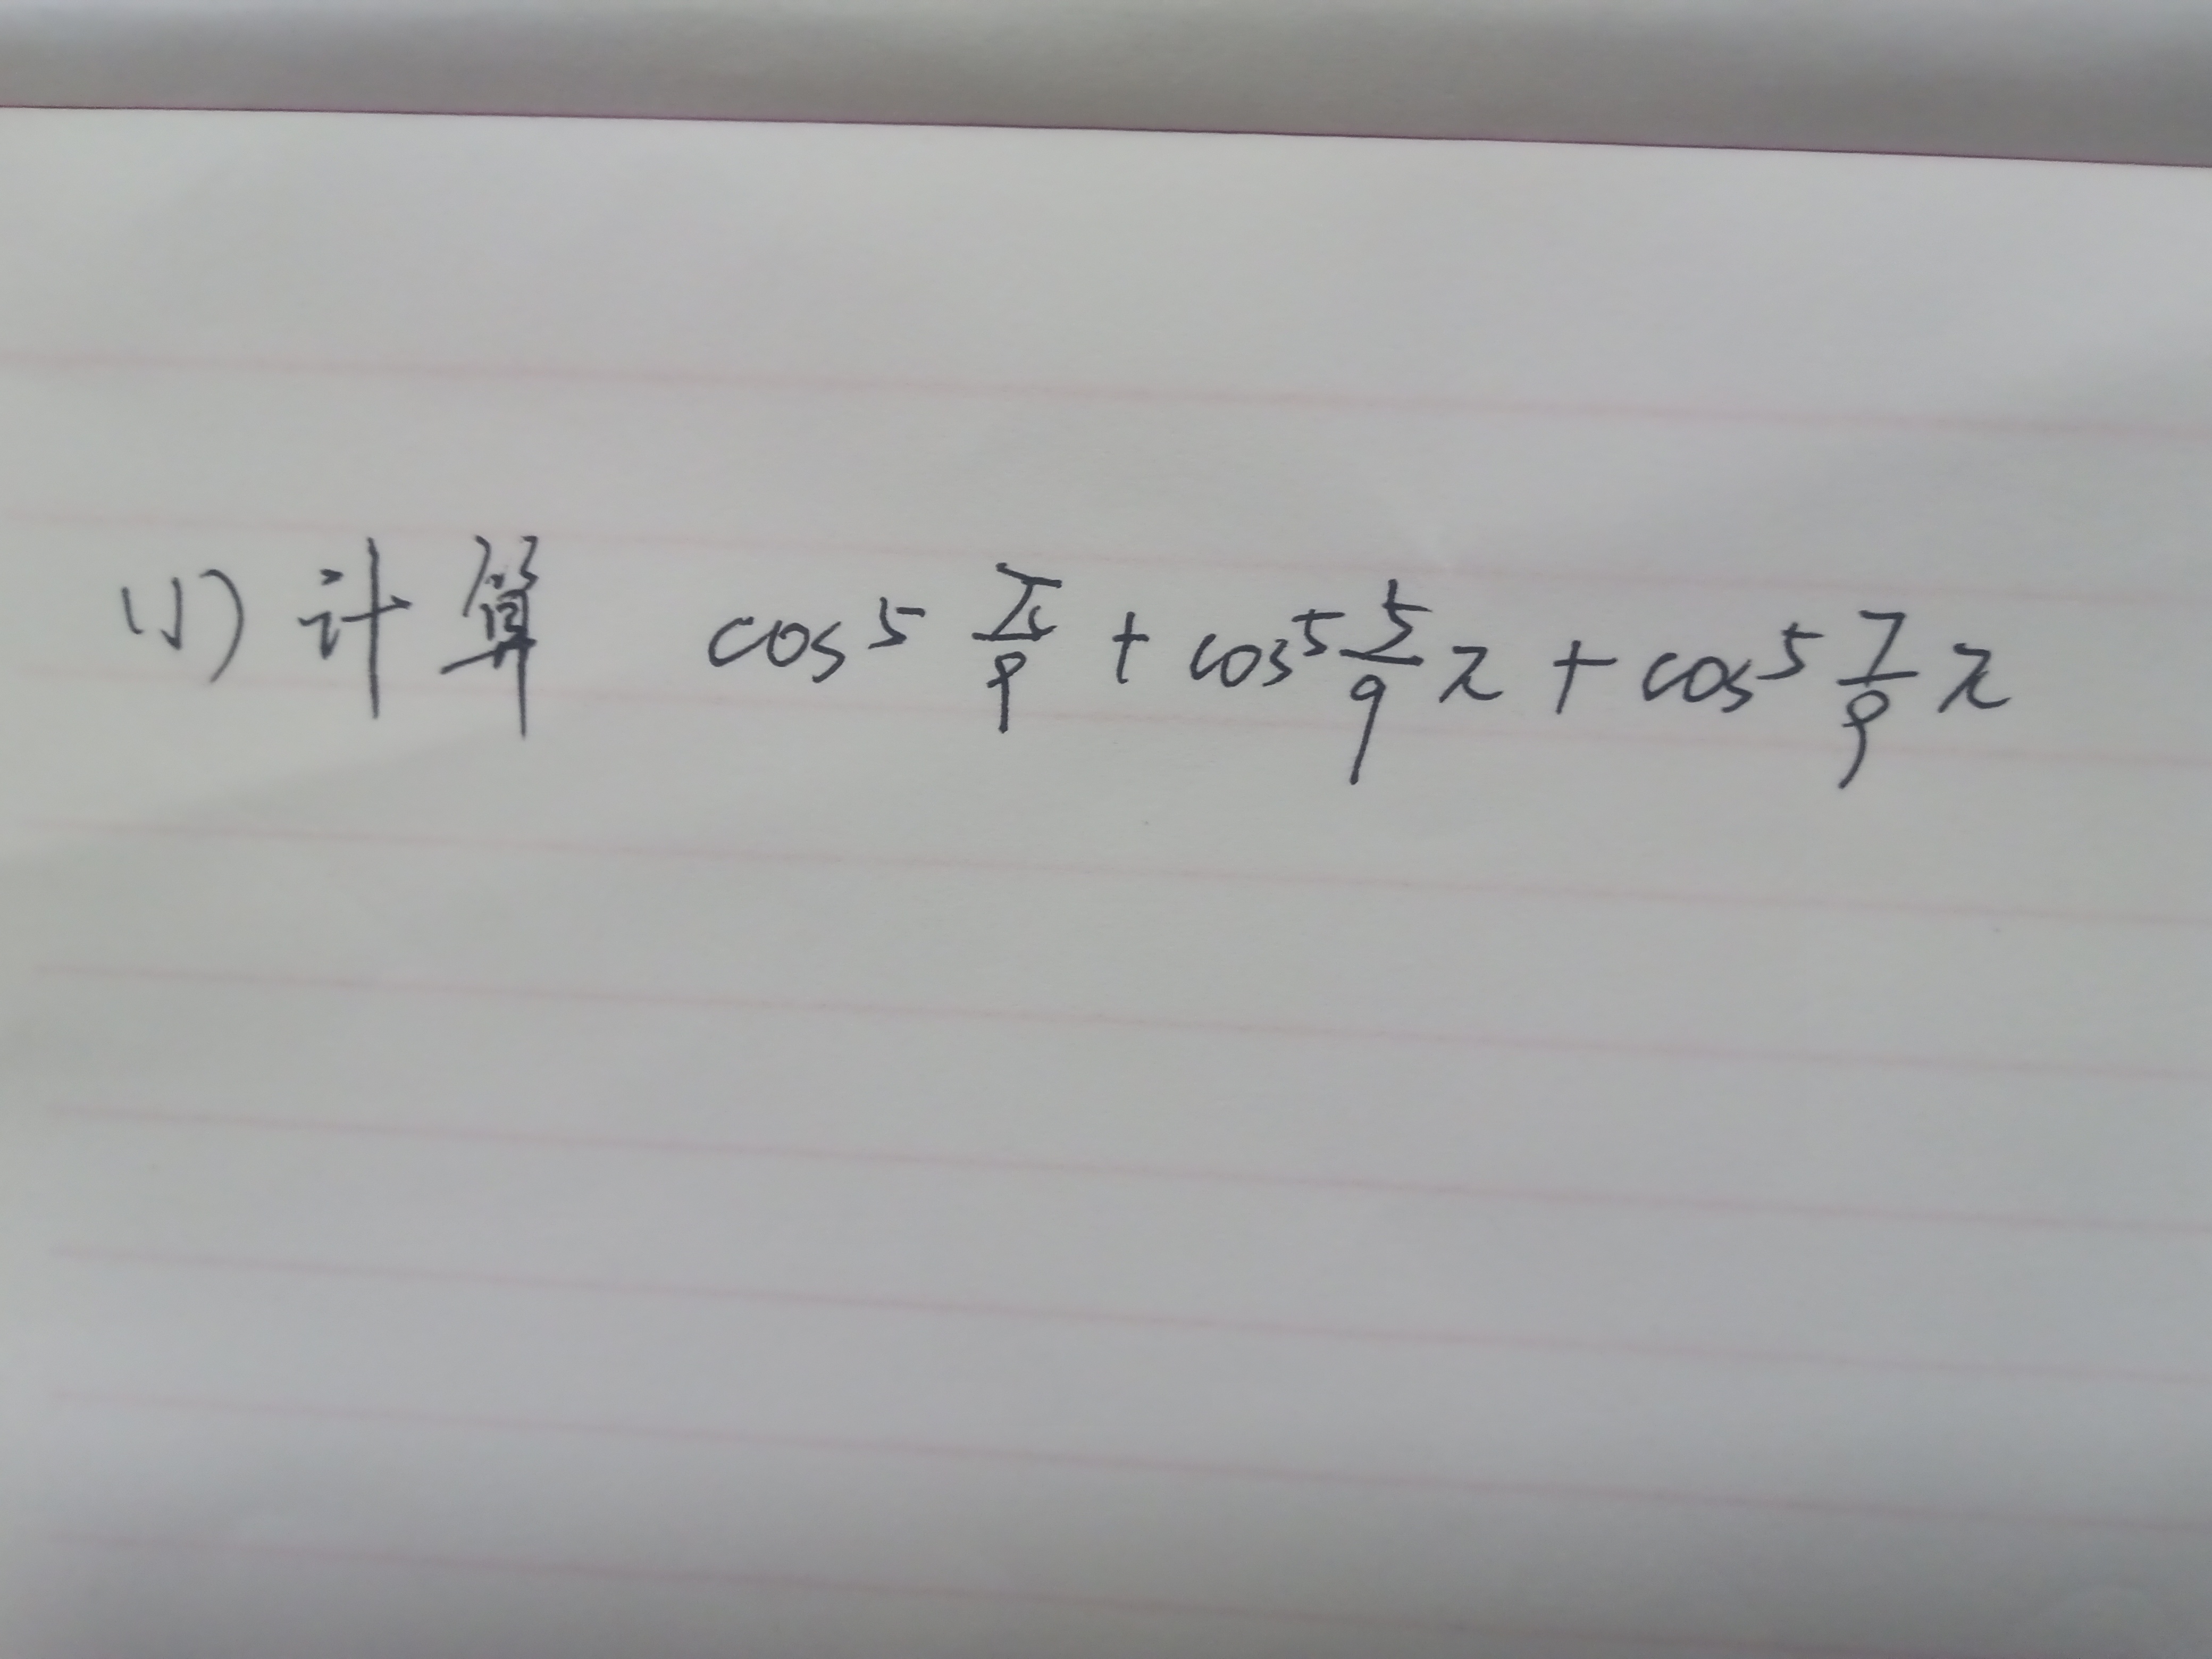 (1) 计算 cos⁵ π/9 + cos⁵ 5/9 π + cos⁵ 7/9 π